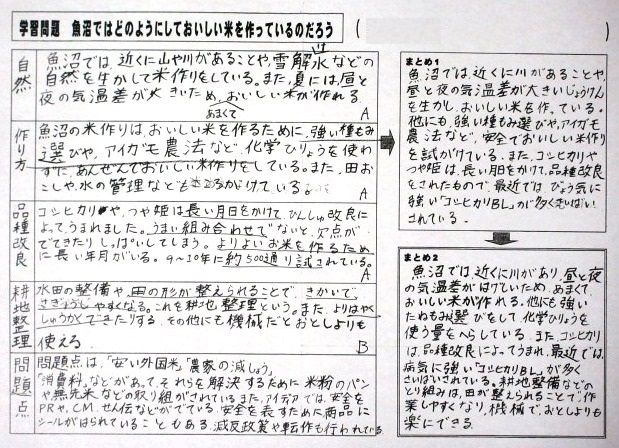 学習問題 魚沼ではどのようにしておいしい米を作っているのだろう
(
自然
魚沼では、近くに山や川があることや、雪解水などの
自然を生かして米作りをしている。また、夏には、昼と
夜の気温差が大きいため、おいしい米が作れる。
あまくて
A
作り方
魚沼の米作りは、おいしい米を作るために、強い種もみ
選びや、アイガモ農法など、化学ひりょうを使わ
ずに、あんぜんでおいしい米作りをしている。また、田お
こしや、水の管理なども
がけている。
A
品種改良
コシヒカリや、つや姫は長い月日をかけて、ひんしゅ改良に
よって、うまれました。うまい組み合わせでないと、欠点が
でてきたりしっぱいしてしまう。よりよいお米を作るため
に長い年月がいる。9〜10年に約500通り試されている。
A
耕地整理
水田の整備や、田の形が整えられることで、きかいで、
さぎょうしやすくなる。これを耕地整理という。また、よりはやく
しゅうかくできたりする、その他にも機械だとおとしよりも
使える
B
問題点
問題点は、「安い外国米」「農家の減しょう」
「消費料」などがあって、それらを解決するために米粉のパン
や無洗米などの取り組がされている。また、アイデアでは、安全を
PRや、CM、せん伝などがでている。安全を表すために商品に
シールがはられていることもある。減反政策や転作も行われている
まとめ1
魚沼では、近くに川があることや、
昼と夜の気温差が大きいじょうけん
を生かし、おいしい米を作っている。
他にも、強い種もみ選びや、アイガモ
農法など、安全でおいしい米作り
を試がけている。また、コシヒカリや
つや姫は、長い月日をかけて、品種改良
をされたもので、最近では びょう気に
強い「コシヒカリBL」が多くさいばい
されている。
まとめ2
魚沼では、近くに川があり、昼と夜
の気温差がはげしいため、あまくて、
おいしい米が作れる。他にも強い
たねもみ選びをして、化学ひりょうを
使う量をへらしている。また、コシヒカリ
は、品種改良によってうまれ、最近では、
病気に強い「コシヒカリBL」が多く
さいばいされている。耕地整備などの
とり組みは、田が整えられることで、作
業しやすくなり、機械で、おとしよりも
楽にできる。